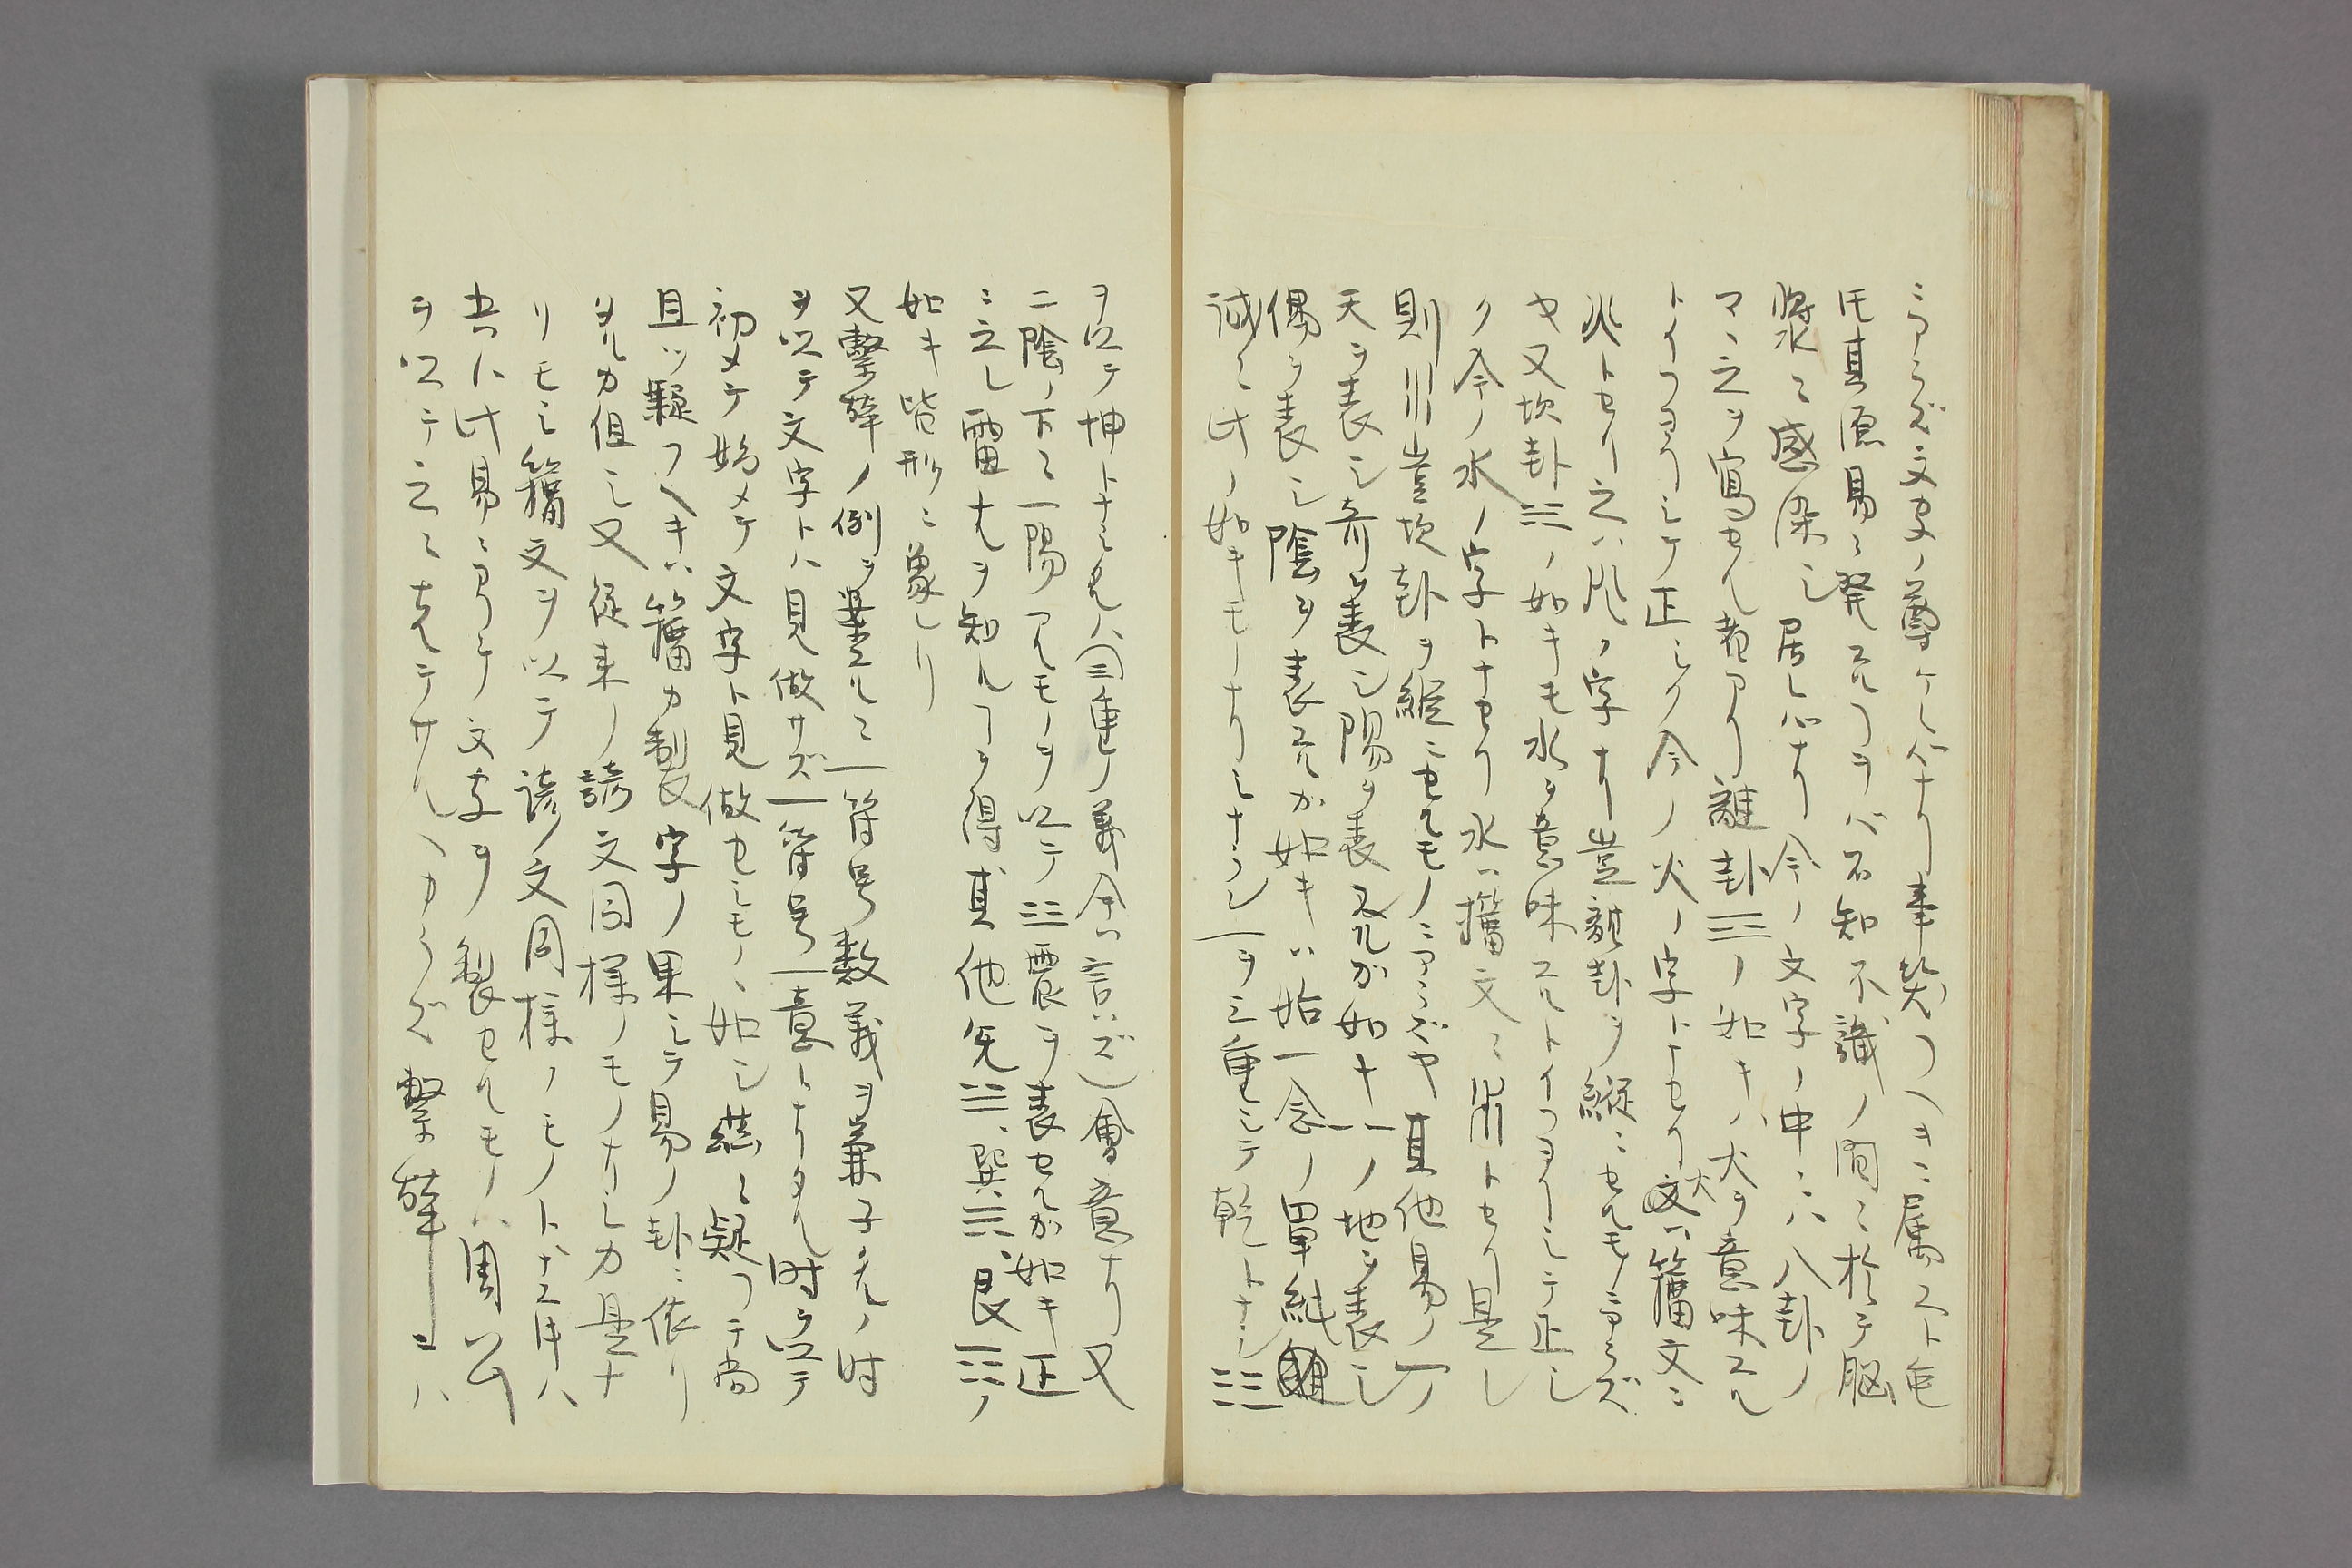 ニアラズ文字ノ尊ケレバナリ奉笑フヘキニ属スト𪜈
𪜈其源易ニ発スルヿヲバ不知不識ノ間ニ於テ脳
漿ニ感染シ居レバナリ今ノ文字ノ中ニハ八卦ノ
マヽ之ヲ寫セル者アリ離卦☲ノ如キハ火ヲ意味スル
トイフヨリシテ正シク今ノ火ノ字トナセリ火ハ籀文ニ
火トセリ之ハ ノ字ナリ豈離卦ヲ縦ニセルモノニアラズ
ヤ又坎卦☵ノ如キモ水ヲ意味スルトイフヨリシテ正シ
ク今ノ水ノ字トナセリ水ハ籀文ニ トセリ是レ
則 豈坎卦ヲ縦ニセルモノニアラズヤ其他易ノ一ノ
天ヲ表シ奇ヲ表シ陽ヲ表スルカ如キ⚋ノ地ヲ表シ
偶ヲ表シ陰ヲ表スルカ如キハ始一念ノ單純
誠ニ此ノ如キモノナリシナラン一ヲ三重シテ乾トナシ☷
ヲ以テ坤トナシタルハ(三重ノ義今ハ言ハズ)會意ナリ又
二陰ノ下ニ一陽アルモノヲ以テ☳震ヲ表セルカ如キ正
ニ之レ雷ナルヲ知ルヿヲ得其他兌☱巽☴艮☶ノ
如キ皆形ニ象レリ
又繋辞ノ例ヲ挙クルニ一符号数義ヲ兼子タルノ時
ヲ以テ文字トハ見做サズ一符号一意トナリタル時ヲ以テ
初メテ始メテ文字ト見做セシモノヽ如シ茲ニ疑フテ尚
且ツ疑フヘキハ籀カ製字ノ果シテ易ノ卦ニ依リ
タルカ但シ又従来ノ諺文同様ノモノナリシカ是ナ
リモシ籀文ヲ以テ諺文同様ノモノトナス𪜈ハ
吉ハ此易ニヨリテ文字ヲ製セルモノハ周公
ヲ以テ之ニ充テサルヘカラズ繋辞ニハ